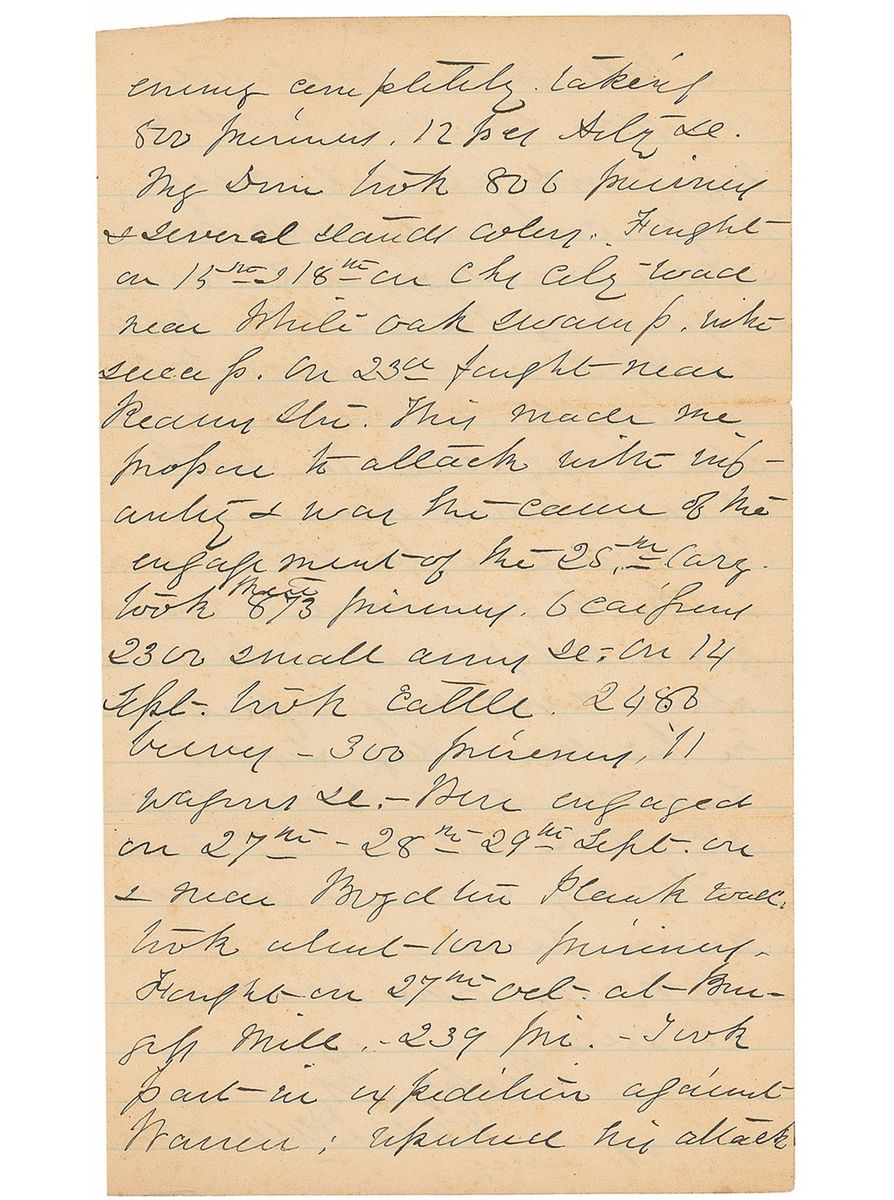 enemy completely. taking
800 prisoners, 12 pcs Arty &c.
My Divn took 806 prisoners
& several stands colors. Fought
on 15th & 18th on Chs City road
near White oak swamp, with
success. On 23d fought near
Reams Stn. This made me
propose to attack with inf-
antry & was the cause of the
engagement of the 25th. Cavy.
took there 873 prisoners. 6 caissons
2300 small arms &c. On 14
Sept. took Cattle. 2480
beeves - 300 prisoners, 11
wagons &c. - Been engaged
on 27th - 28th 29th Sept. on
& near Boydton Plank road.
took about 1000 prisoners.
Fought on 27th Oct. at Bur-
gess Mill. - 239 pri. - Took
part in expedition against
Warren; repulsed his attack